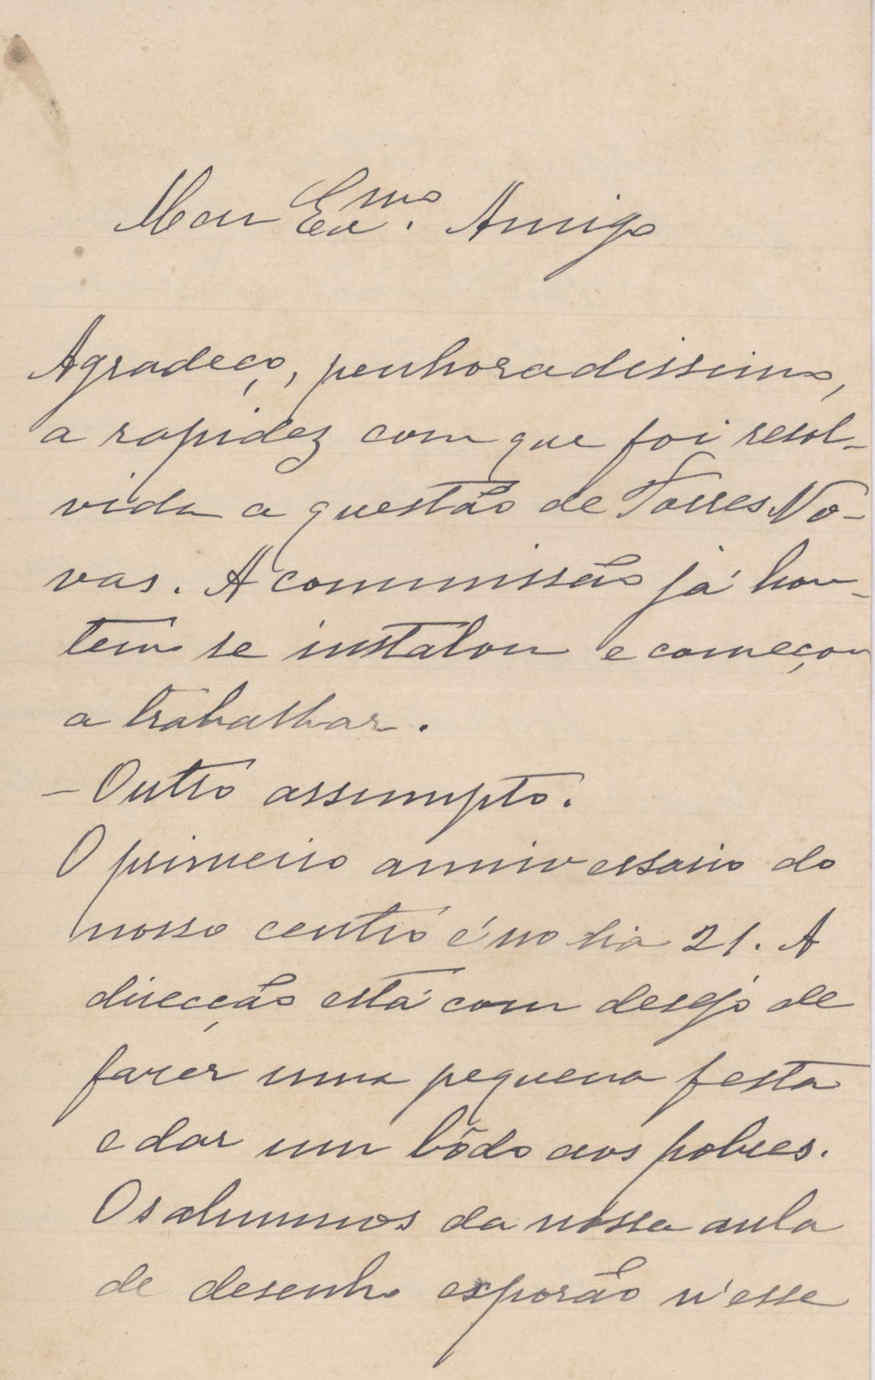 Meu Ex.mo Amigo
Agradeço, penhoradissimo,
a rapidez com que foi resol-
vida a questão de Torres No-
vas. A commissão já hon-
tem se instalou e começou
a trabalhar.
– Outro assumpto.
O primeiro anniversario do
nosso centro é no dia 21. A
direcção está com desejo de
fazer uma pequena festa
e dar um bôdo aos pobres.
Os alumnos da nossa aula
de desenho exporão n'esse